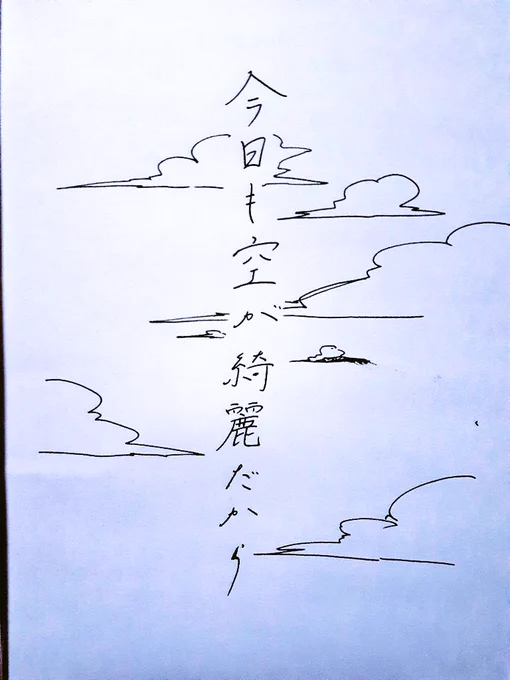 今日も空が綺麗だから